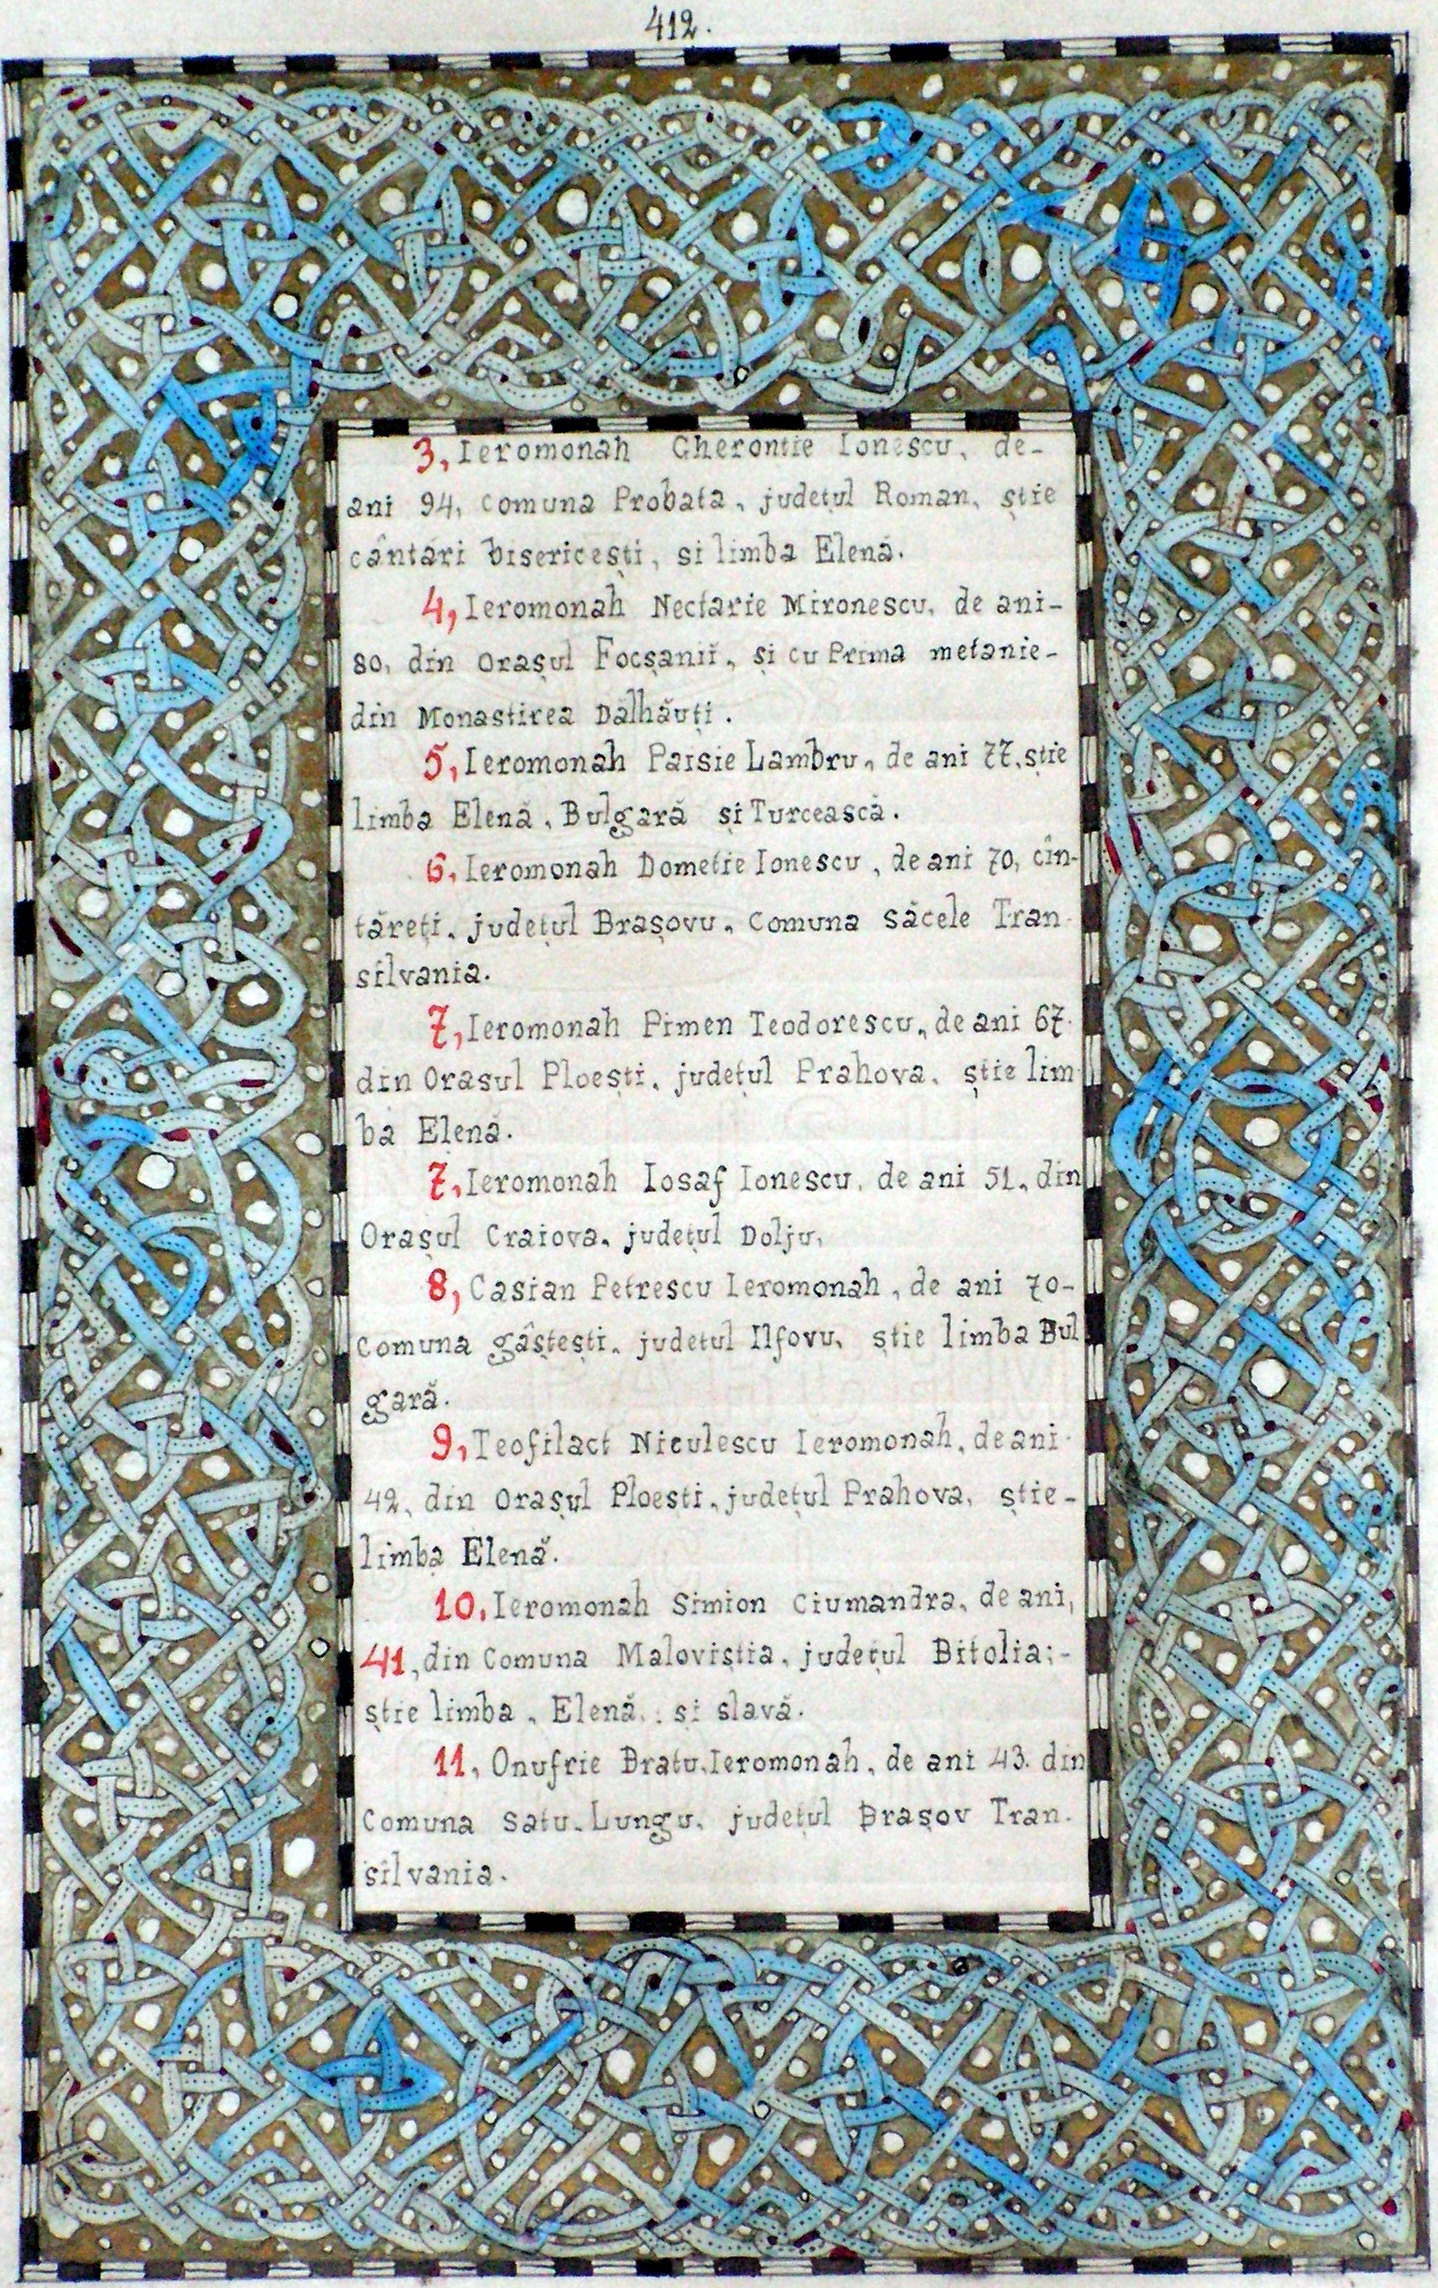 412.
3, Ieromonah Gherontie Ionescu, de-
ani 94, comuna Probata, județul Roman, știe
cântări bisericești, si limba Elenă.
4, Ieromonah Nectarie Mironescu, de ani-
80, din orașul Focșanii, și cu Prima metanie-
din Monastirea Dălhăuți.
5, Ieromonah Paisie Lambru, de ani 77, știe
limba Elenă, Bulgară și Turcească.
6, Ieromonah Dometie Ionescu, de ani 70, cîn-
tăreți, județul Brașovu, Comuna Săcele Tran-
silvania.
7, Ieromonah Pimen Teodorescu, de ani 67.
din Orasul Ploești, județul Prahova, știe lim-
ba Elenă.
7, Ieromonah Iosaf Ionescu, de ani 51, din
Orașul Craiova, județul Dolju,
8, Casian Petrescu Ieromonah, de ani 70-
Comuna gâștești, judetul Ilfovu, stie limba Bul
gară.
9, Teofilact Niculescu Ieromonah, de ani-
42, din Orașul Ploesti, județul Prahova, știe-
limba Elenă.
10, Ieromonah Simion Ciumandra, de ani,
41, din Comuna Maloviștia, județul Bitolia;-
știe limba, Elenă, si slavă.
11, Onufrie Bratu, Ieromonah, de ani 43. din
Comuna Satu-Lungu, județul Brașov Tran-
silvania.